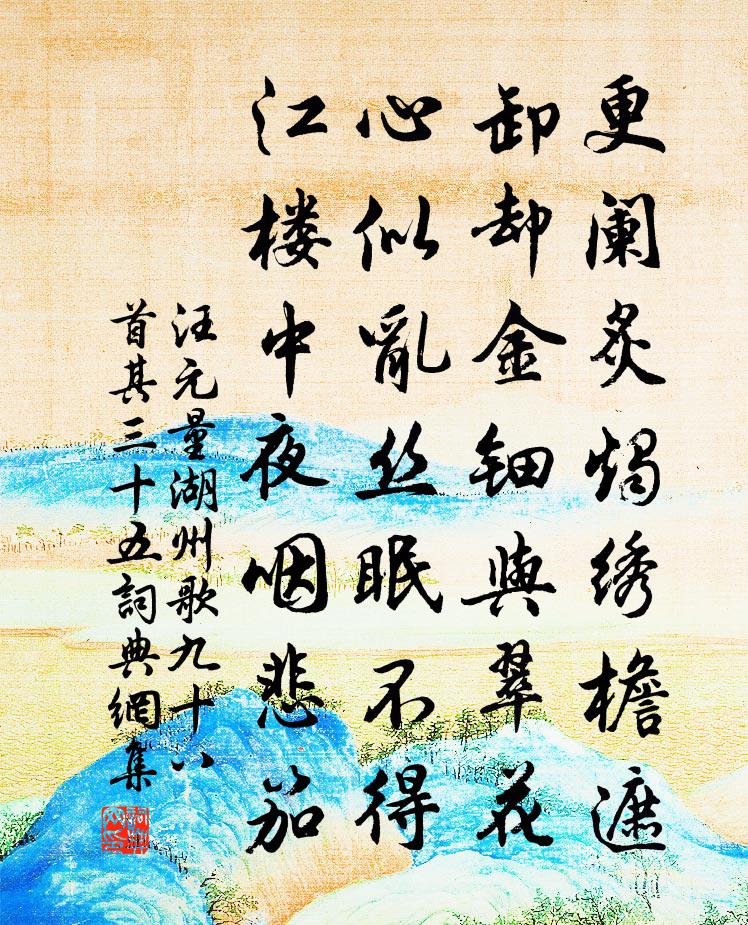 更阑炙烛绣檐遮
卸却金钿與翠花
心似亂丝眠不得
江楼中夜咽悲笳
汪元量湖州歌九十八
首其三十五詞典網集